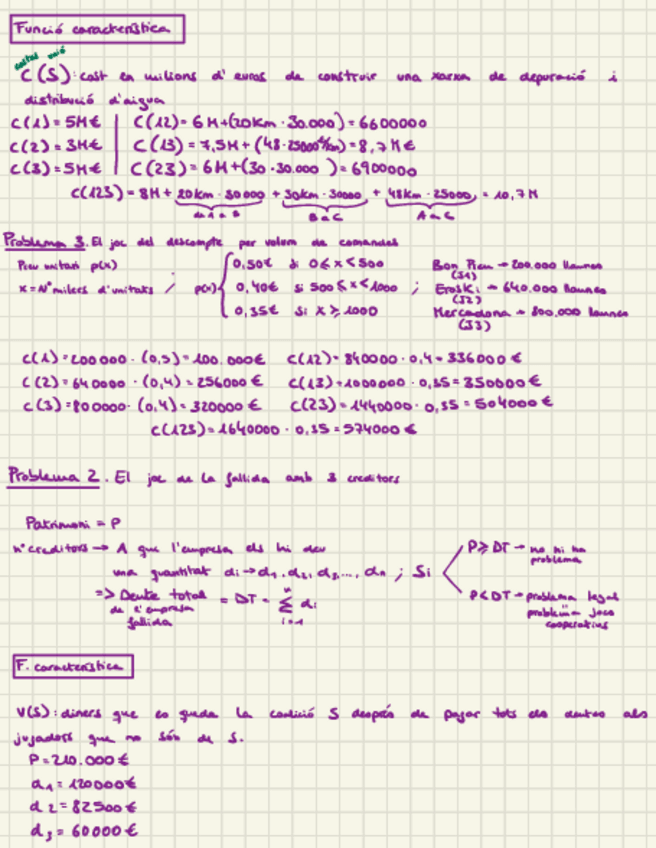 Funció característica
costos unió
C(S): cost en milions d'euros de construir una xarxa de depuració i
distribució d'aigua
C(1) = 5M€ | C(12) = 6M+(20Km · 30.000) = 6600000
C(2) = 3M€ | C(13) = 7,5M + (48·25000€/km) = 8,7M€
C(3) = 5M€ | C(23) = 6M+(30·30.000) = 6900000
C(123) = 8M + 20Km · 30000 + 30km · 30000 + 48Km · 25000 = 10,7M
de A a B B a C A a C
Problema 3. El joc del descompte per volum de comandes
Preu unitari p(x)
x = Nº milers d'unitats / p(x) { 0,50€ si 0 ≤ x < 500
0,40€ si 500 ≤ x < 1000 ;
0,35€ si x ≥ 1000
Bon Preu → 200.000 llaunes
(J1)
Eroski → 640.000 llaunes
(J2)
Mercadona → 800.000 llaunes
(J3)
C(1) = 200000 · (0,5) = 100.000€ C(12) = 840000 · 0,4 = 336000€
C(2) = 640000 · (0,4) = 256000€ C(13) = 1000000 · 0,35 = 350000€
C(3) = 800000 · (0,4) = 320000€ C(23) = 1440000 · 0,35 = 504000€
C(123) = 1640000 · 0,35 = 574000€
Problema 2. El joc de la fallida amb 3 creditors
Patrimoni = P
nº creditors → A que l'empresa els hi deu
una quantitat di → d1, d2, d3, ..., dn ; Si
P ≥ DT → no hi ha
problema
P < DT → problema legal
problema jocs
cooperatius
=> Deute total = DT = n Σ i=1 di
de l'empresa
fallida
F. característica
V(S): diners que es queda la coalició S després de pagar tots els deutes als
jugadors que no són de S.
P = 210.000€
d1 = 120000€
d2 = 82500€
d3 = 60000€